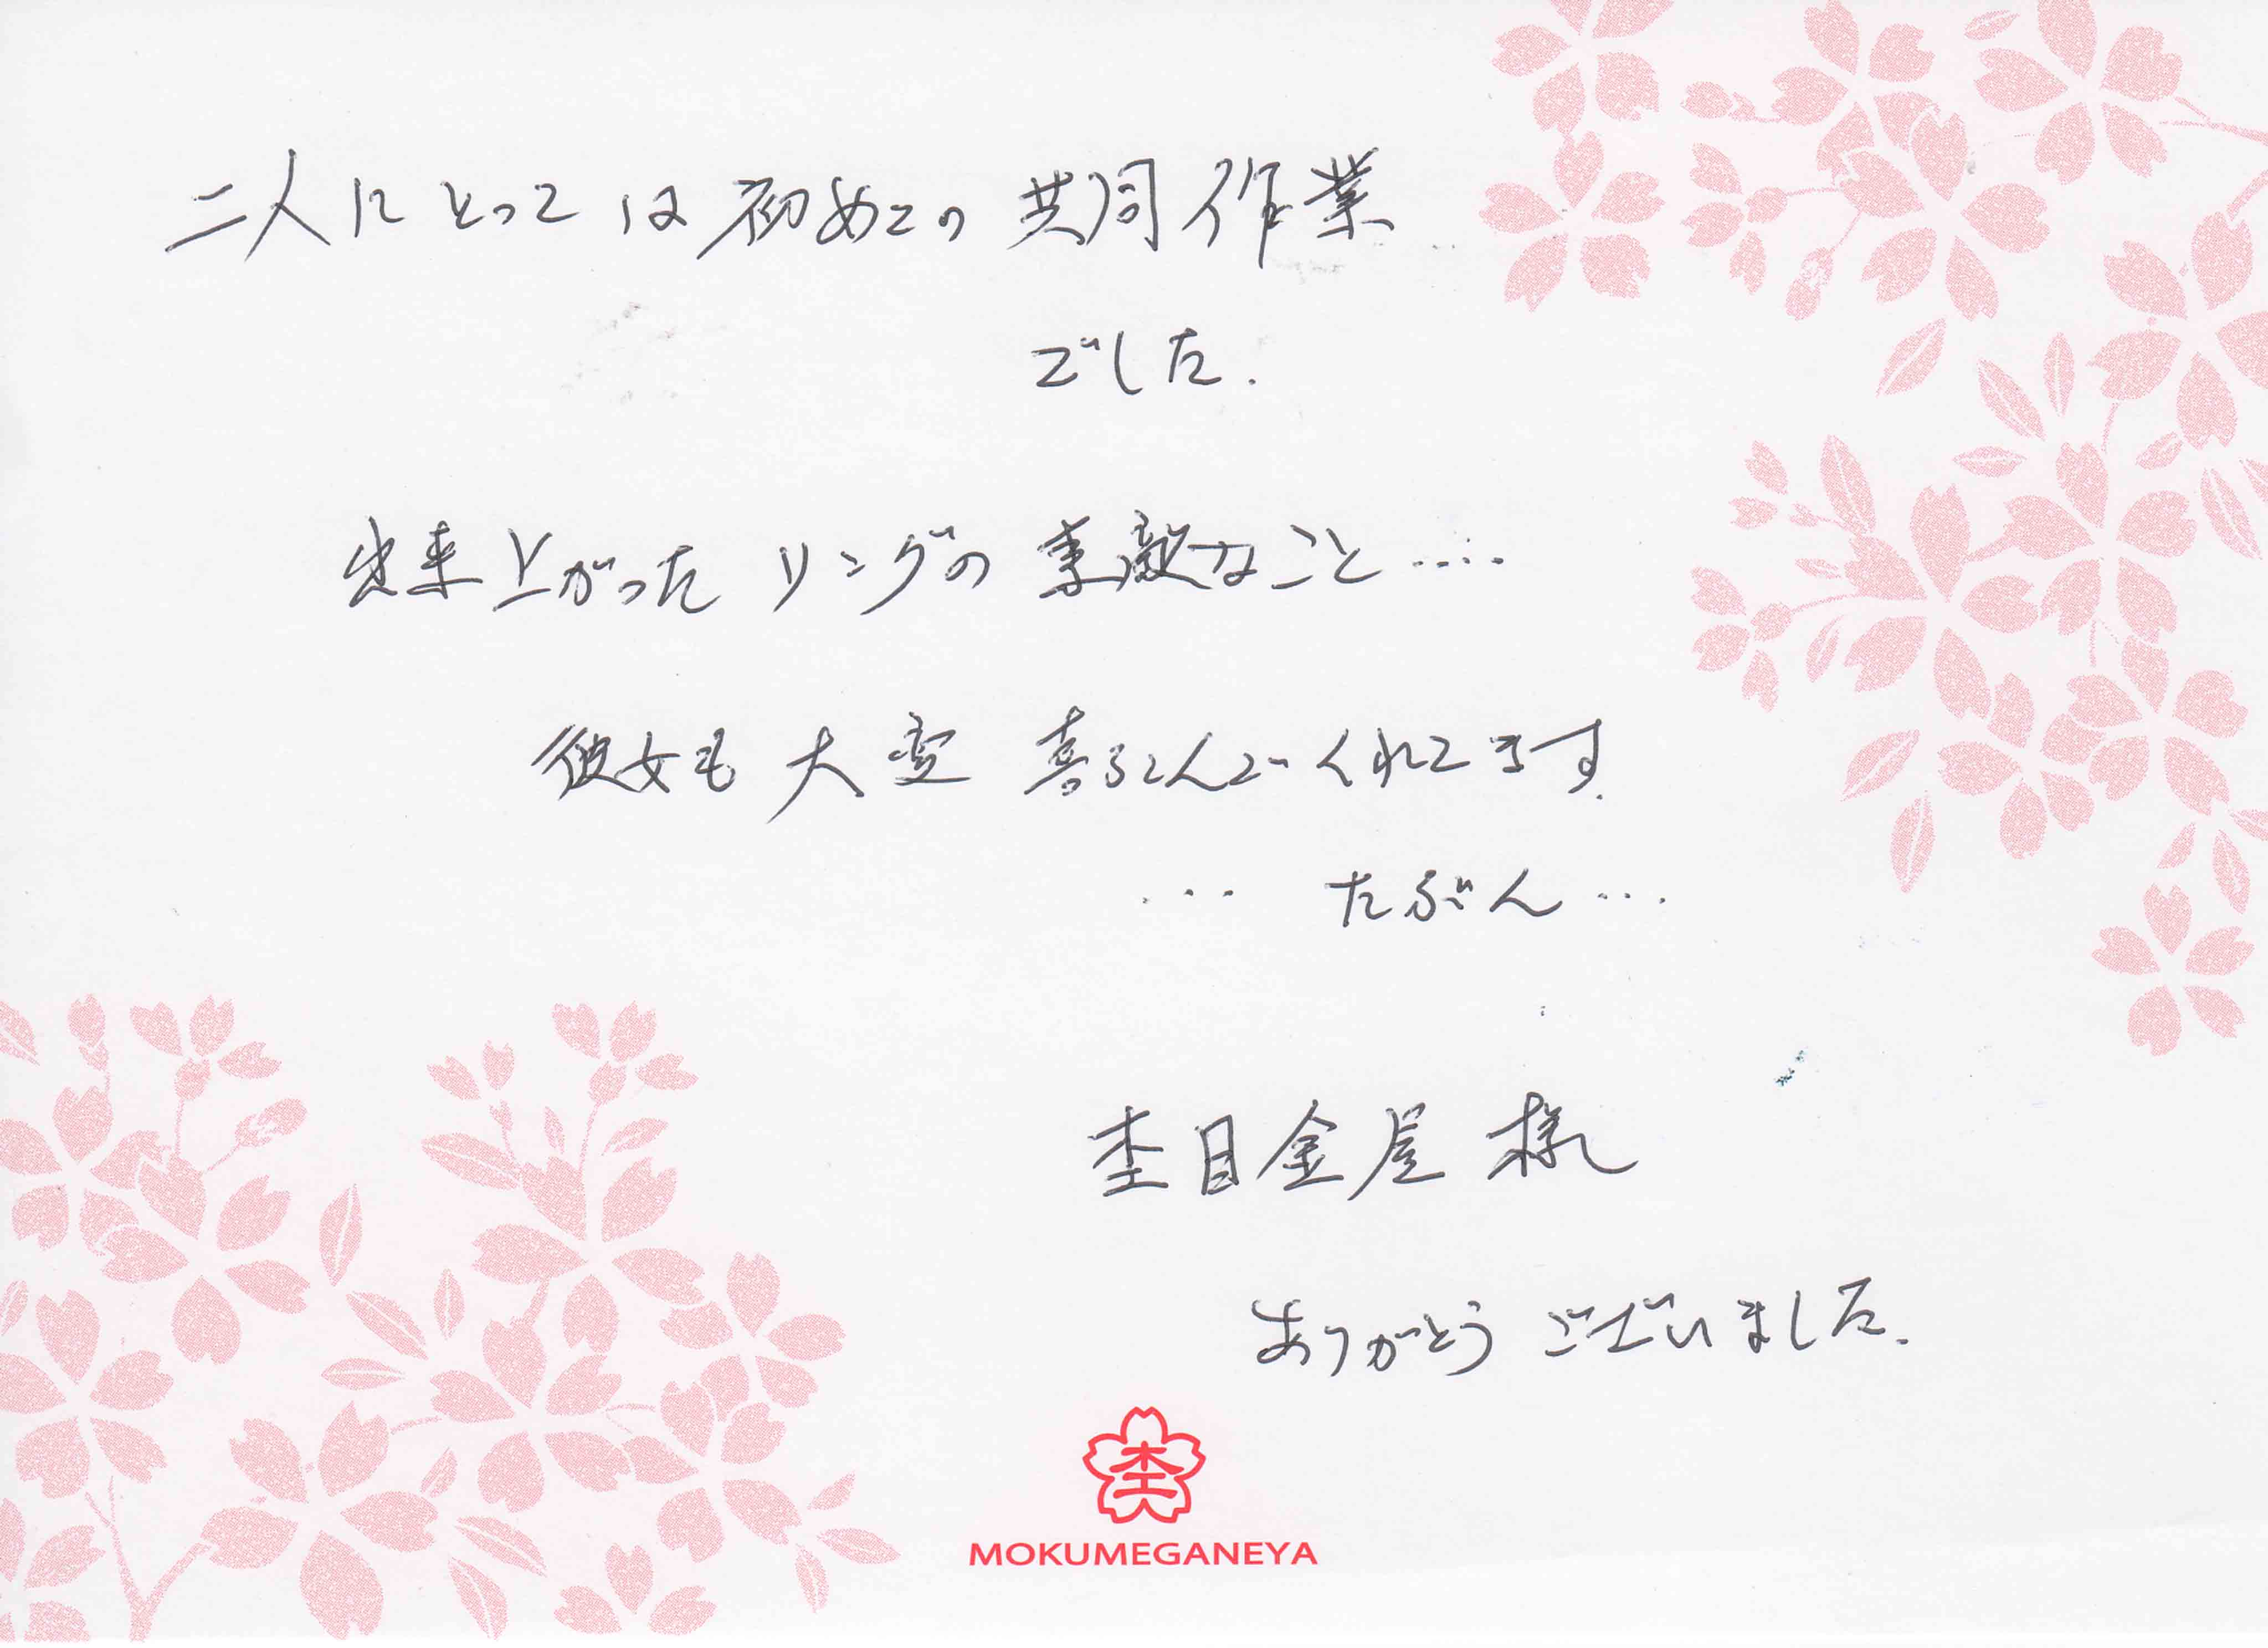 二人にとっては初めての共同作業
でした.
出来上がったリングの素敵なこと‥‥
彼女も大変喜ろこんでくれてます.
… たぶん …
杢目金屋 様
ありがとうございました.
杢
MOKUMEGANEYA